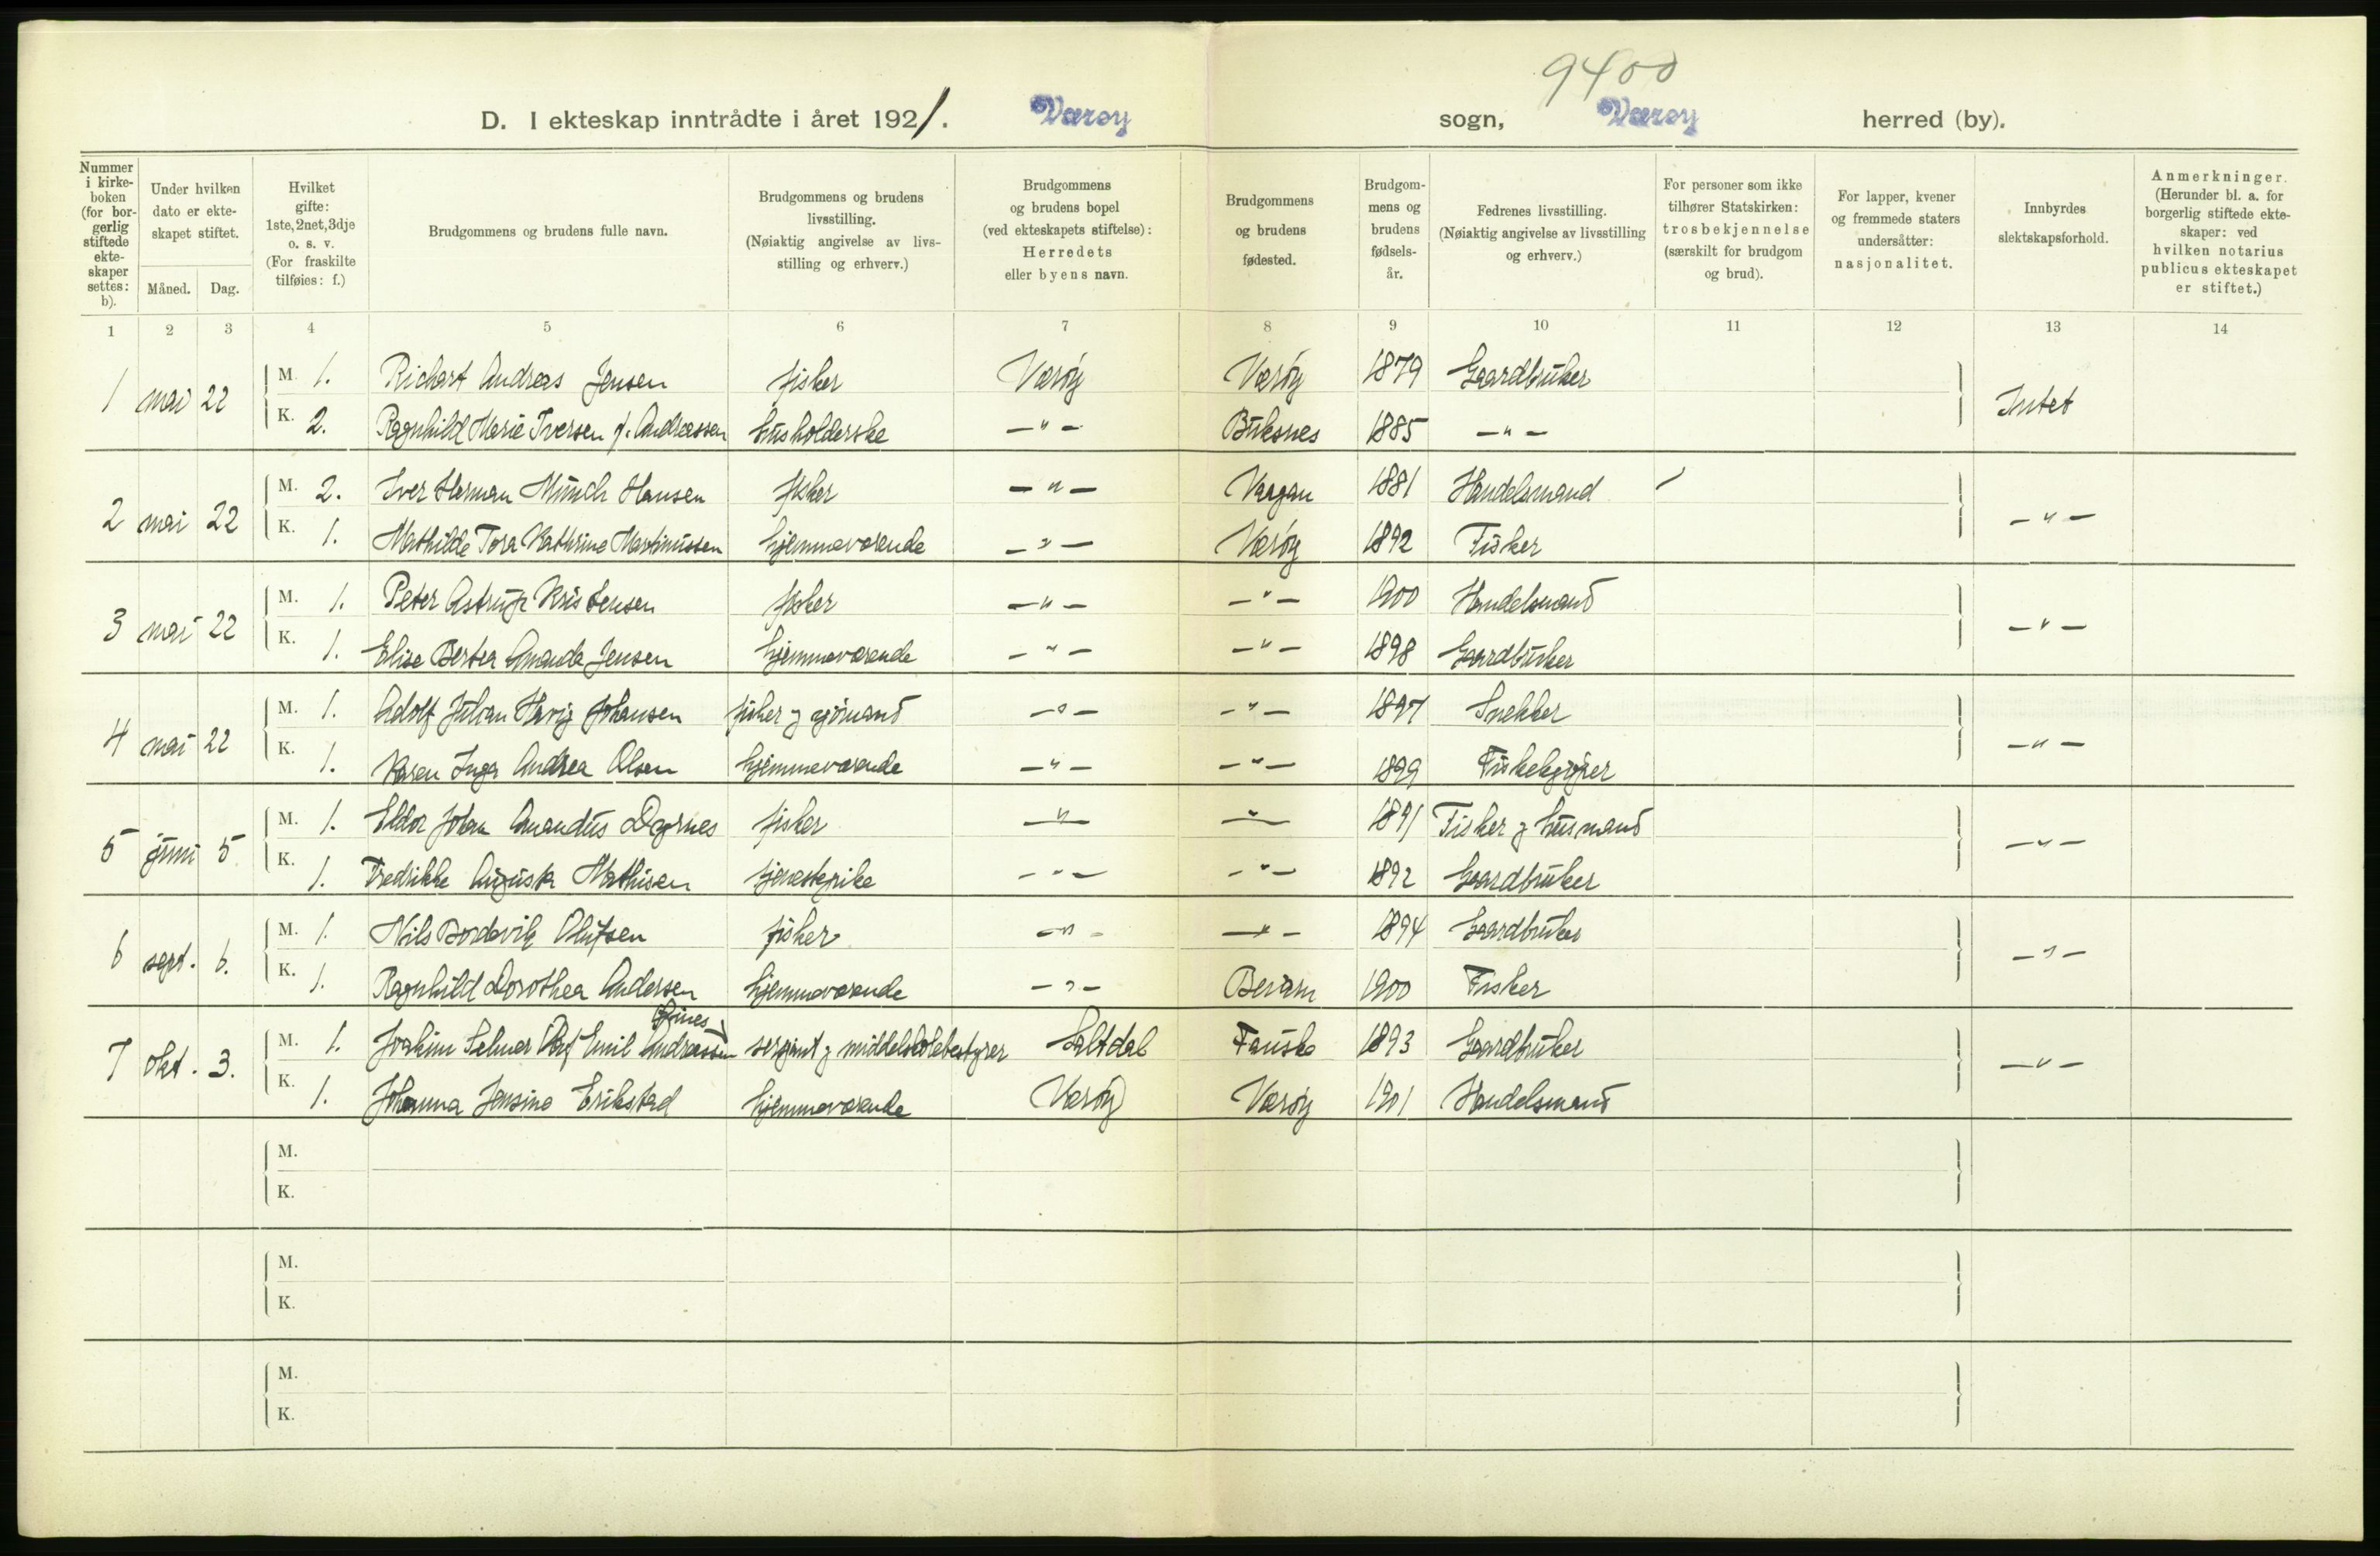 9400
D. I ekteskap inntrådte i året 1921. Værøy sogn, Værøy herred (by).
Nummer i kirkeboken (for borgerlig stiftede ekteskaper settes: b).
Under hvilken dato er ekteskapet stiftet.
Måned. Dag.
Hvilket gifte: 1ste, 2net, 3dje o. s. v. (For fraskilte tilføies: f.)
Brudgommens og brudens fulle navn.
Brudgommens og brudens livsstilling. (Nøiaktig angivelse av livsstilling og erhverv.)
Brudgommens og brudens bopel (ved ekteskapets stiftelse): Herredets eller byens navn.
Brudgommens og brudens fødested.
Brudgommens og brudens fødselsår.
Fedrenes livsstilling. (Nøiaktig angivelse av livsstilling og erhverv.)
For personer som ikke tilhører Statskirken: trosbekjennelse (særskilt for brudgom og brud).
For lapper, kvener og fremmede staters undersåtter: nasjonalitet.
Innbyrdes slektskapsforhold.
Anmerkninger. (Herunder bl. a. for borgerlig stiftede ekteskaper: ved hvilken notarius publicus ekteskapet er stiftet.)
1 2 3 4 5 6 7 8 9 10 11 12 13 14
1 mai 22 M. 1. Richart Andreas Jensen fisker Værøy Værøy 1879 Gaardbruker Intet
K. 2. Ragnhild Marie Iversen f. Andreassen husholderske —"— Buksnes 1885 —"—
2 mai 22 M. 2. Iver Herman Münch Hansen fisker —"— Vaagan 1881 Handelsmand —"—
K. 1. Mathilde Tora Kathrine Martinussen hjemmeværende —"— Værøy 1892 Fisker
3 mai 22 M. 1. Peter Astrup Kristensen fisker —"— —"— 1900 Handelsmand —"—
K. 1. Elise Bertea Amanda Jensen hjemmeværende —"— —"— 1898 Gaardbruker
4 mai 22 M. 1. Adolf Julian Havig Johansen fisker og sjømand —"— —"— 1897 Snekker —"—
K. 1. Karen Inga Andrea Olsen hjemmeværende —"— —"— 1899 Fiskekjøper
5 juni 5 M. 1. Eldor Johan Amandus Dypnes fisker —"— —"— 1891 Fisker og husmand —"—
K. 1. Fredrikke Augusta Mathisen tjenestepike —"— —"— 1892 Gaardbruker
6 sept. 6. M. 1. Nils Bordevik Olufsen fisker —"— —"— 1894 Gaardbruker —"—
K. 1. Ragnhild Dorothea Andersen hjemmeværende —"— 1900 Fisker
7 okt. 3. M. 1. Joakim Selmer Olaf Emil Andreassen sersjant og middelskolebestyrer Saltdal Fauske 1893 Gaardbruker —"—
K. 1. Johanna Jensine Erikstad hjemmeværende Værøy Værøy 1901 Handelsmand
M.
K.
M.
K.
M.
K.